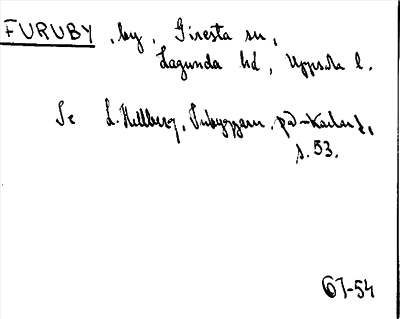 FURUBY, by, Giresta sn,
Lagunda hd, Uppsala l.
Se L. Hellberg, på
s. 53.
67-54